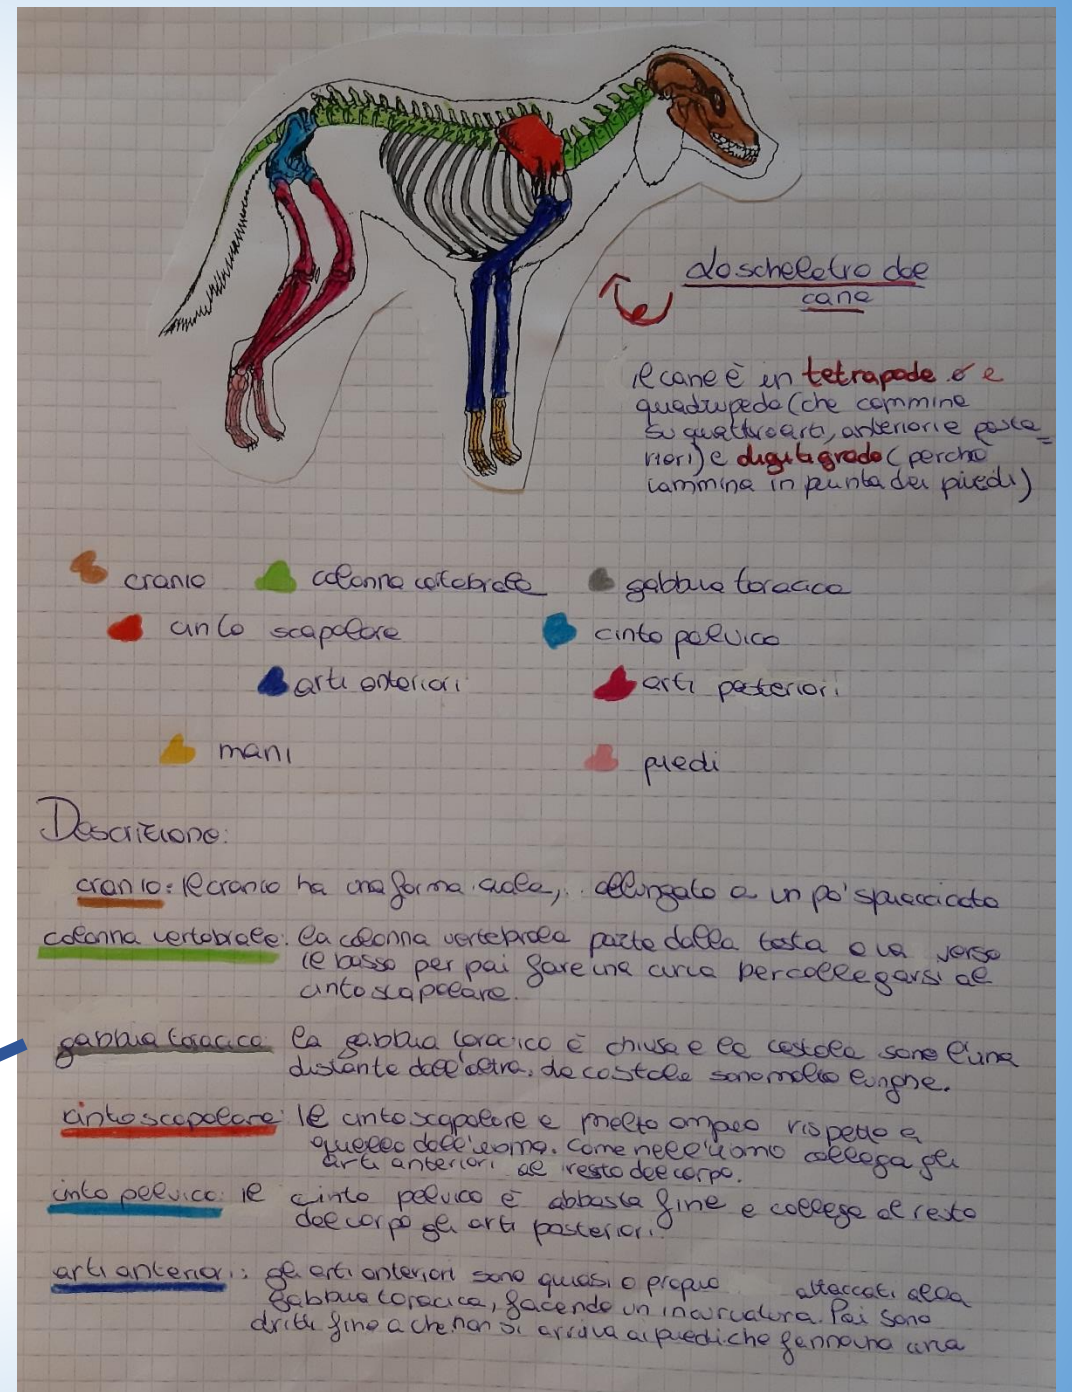 Lo scheletro del
cane
il cane è un tetrapode e
quadrupede (che cammina
su quattro arti, anteriori e poste=
riori) e digitigrado (perchè
cammina in punta dei piedi)
cranio colonna vertebrale gabbia toracica
cinto scapolare cinto pelvico
arti anteriori arti posteriori
mani piedi
Descrizione:
cranio: Il cranio ha una forma ovale, allungata e un po' spiaccicata
colonna vertebrale: la colonna vertebrale parte dalla testa e va verso
il basso per poi fare una curva per collegarsi al
cinto scapolare.
gabbia toracica: la gabbia toracica è chiusa e le costole sono l'una
distante dall'altra. Le costole sono molto lunghe.
cinto scapolare: Il cinto scapolare è molto ampio rispetto a
quello dell'uomo. Come nell'uomo collega gli
arti anteriori al resto del corpo.
cinto pelvico: il cinto pelvico è abbasta fine e collega al resto
del corpo gli arti posteriori.
arti anteriori: gli arti anteriori sono quasi o proprio attaccati alla
gabbia toracica, facendo un incurvatura. Poi sono
dritti fino a che non si arriva ai piedi che fanno una